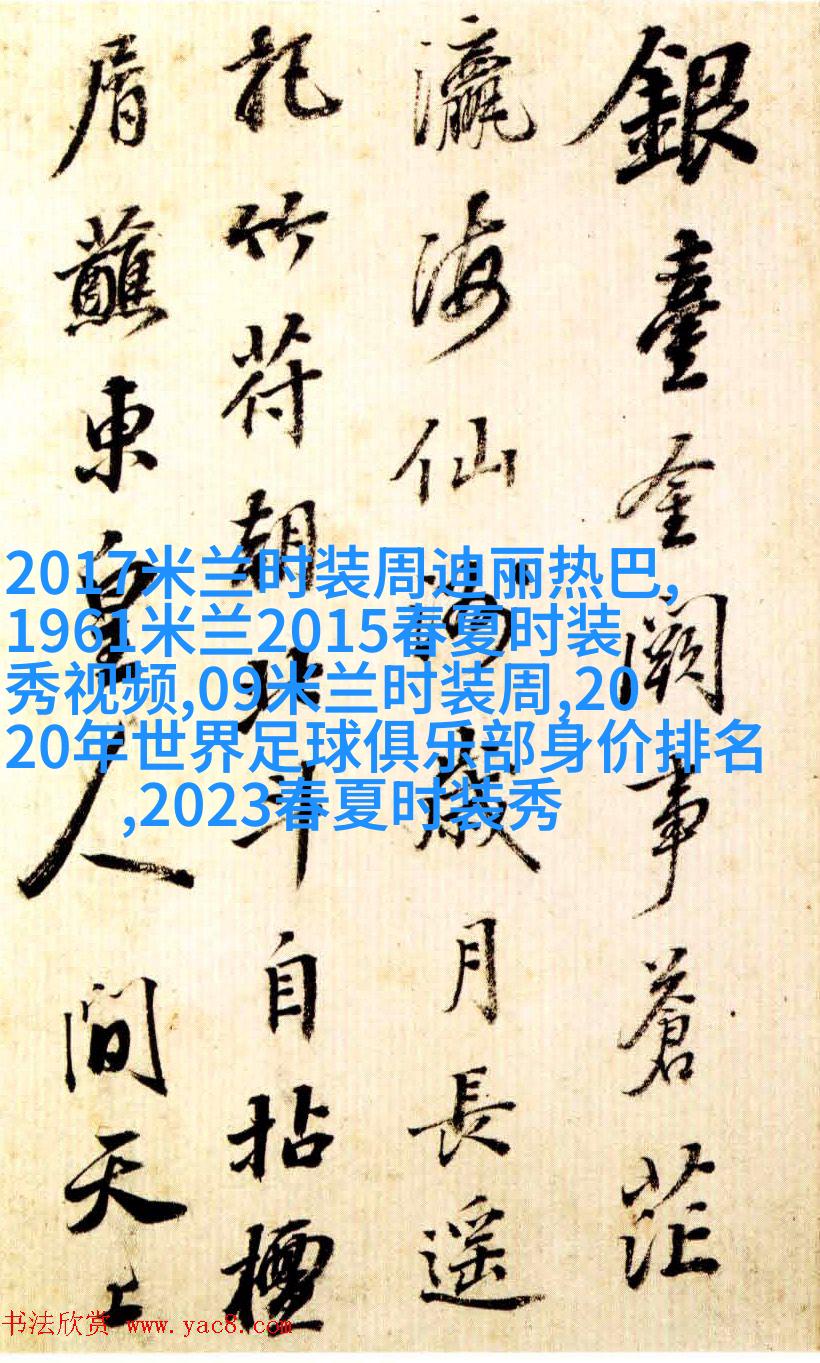 銀臺金闕事蒼茫
瀛海仙歲月長遥
記竹符朝北斗自拈檀
屑蘸東皇人間天上
2017米兰时装周迪丽热巴,
1961米兰2015春夏时装
秀视频,09米兰时装周,20
20年世界足球俱乐部身价排名
,2023春夏时装秀
书法欣赏 www.yac8.com